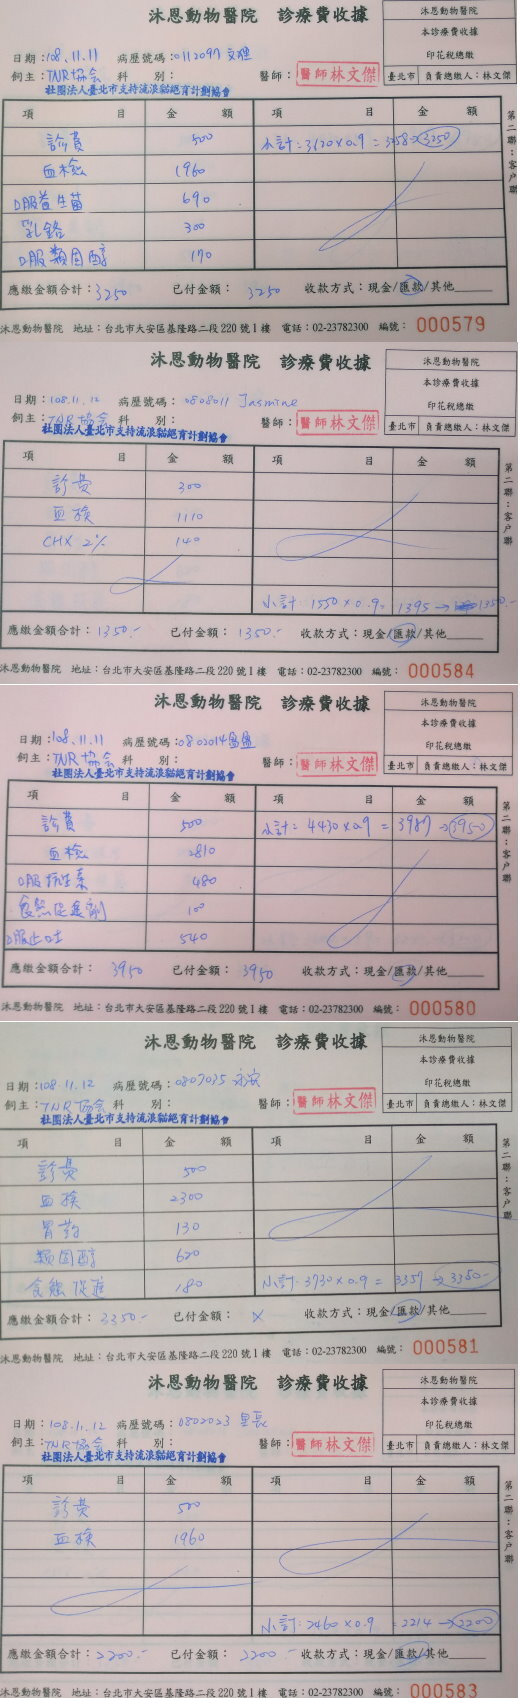 沐恩動物醫院 診療費收據
沐恩動物醫院
本診療費收據
印花稅總繳
臺北市 負責總繳人:林文傑
日期:108.11.11 病歷號碼:0112097
飼主:TNR協會 科 別: 醫師:醫師林文傑
社團法人臺北市支持流浪貓絕育計劃協會
項 目 金 額 項 目 金 額
診費 500 小計:3620×0.9=3258→3250
血檢 1960
口服益生菌 690
乳鉻 300
口服類固醇 170
第二聯:客戶聯
應繳金額合計:3250 已付金額:3250 收款方式:現金/匯款/其他
沐恩動物醫院 地址:台北市大安區基隆路二段220號1樓 電話:02-23782300 編號:000579
沐恩動物醫院 診療費收據
沐恩動物醫院
本診療費收據
印花稅總繳
臺北市 負責總繳人:林文傑
日期:108.11.12 病歷號碼:0808011 Jasmine
飼主:TNR協會 科 別: 醫師:醫師林文傑
社團法人臺北市支持流浪貓絕育計劃協會
項 目 金 額 項 目 金 額
診費 300
血檢 1110
CHX 2% 140
小計:1550×0.9=1395→1350.-
第二聯:客戶聯
應繳金額合計:1350.- 已付金額:1350.- 收款方式:現金/匯款/其他
沐恩動物醫院 地址:台北市大安區基隆路二段220號1樓 電話:02-23782300 編號:000584
沐恩動物醫院 診療費收據
沐恩動物醫院
本診療費收據
印花稅總繳
臺北市 負責總繳人:林文傑
日期:108.11.11 病歷號碼:0802014
飼主:TNR協會 科 別: 醫師:醫師林文傑
社團法人臺北市支持流浪貓絕育計劃協會
項 目 金 額 項 目 金 額
診費 500 小計:4430×0.9=3987→3950
血檢 2810
口服抗生素 480
食慾促進劑 100
口服止吐 540
第二聯:客戶聯
應繳金額合計:3950 已付金額:3950 收款方式:現金/匯款/其他
沐恩動物醫院 地址:台北市大安區基隆路二段220號1樓 電話:02-23782300 編號:000580
沐恩動物醫院 診療費收據
沐恩動物醫院
本診療費收據
印花稅總繳
臺北市 負責總繳人:林文傑
日期:108.11.12 病歷號碼:0807035 永安
飼主:TNR協會 科 別: 醫師:醫師林文傑
社團法人臺北市支持流浪貓絕育計劃協會
項 目 金 額 項 目 金 額
診費 500
血檢 2300
胃藥 130
類固醇 620
食慾促進 180 小計:3730×0.9=3357→3350-
第二聯:客戶聯
應繳金額合計:3350- 已付金額:X 收款方式:現金/匯款/其他
沐恩動物醫院 地址:台北市大安區基隆路二段220號1樓 電話:02-23782300 編號:000581
沐恩動物醫院 診療費收據
沐恩動物醫院
本診療費收據
印花稅總繳
臺北市 負責總繳人:林文傑
日期:108.11.12 病歷號碼:0802023 里長
飼主:TNR協會 科 別: 醫師:醫師林文傑
社團法人臺北市支持流浪貓絕育計劃協會
項 目 金 額 項 目 金 額
診費 500
血檢 1960
小計:2460×0.9=2214→2200
第二聯:客戶聯
應繳金額合計:2200.- 已付金額:2200.- 收款方式:現金/匯款/其他
沐恩動物醫院 地址:台北市大安區基隆路二段220號1樓 電話:02-23782300 編號:000583